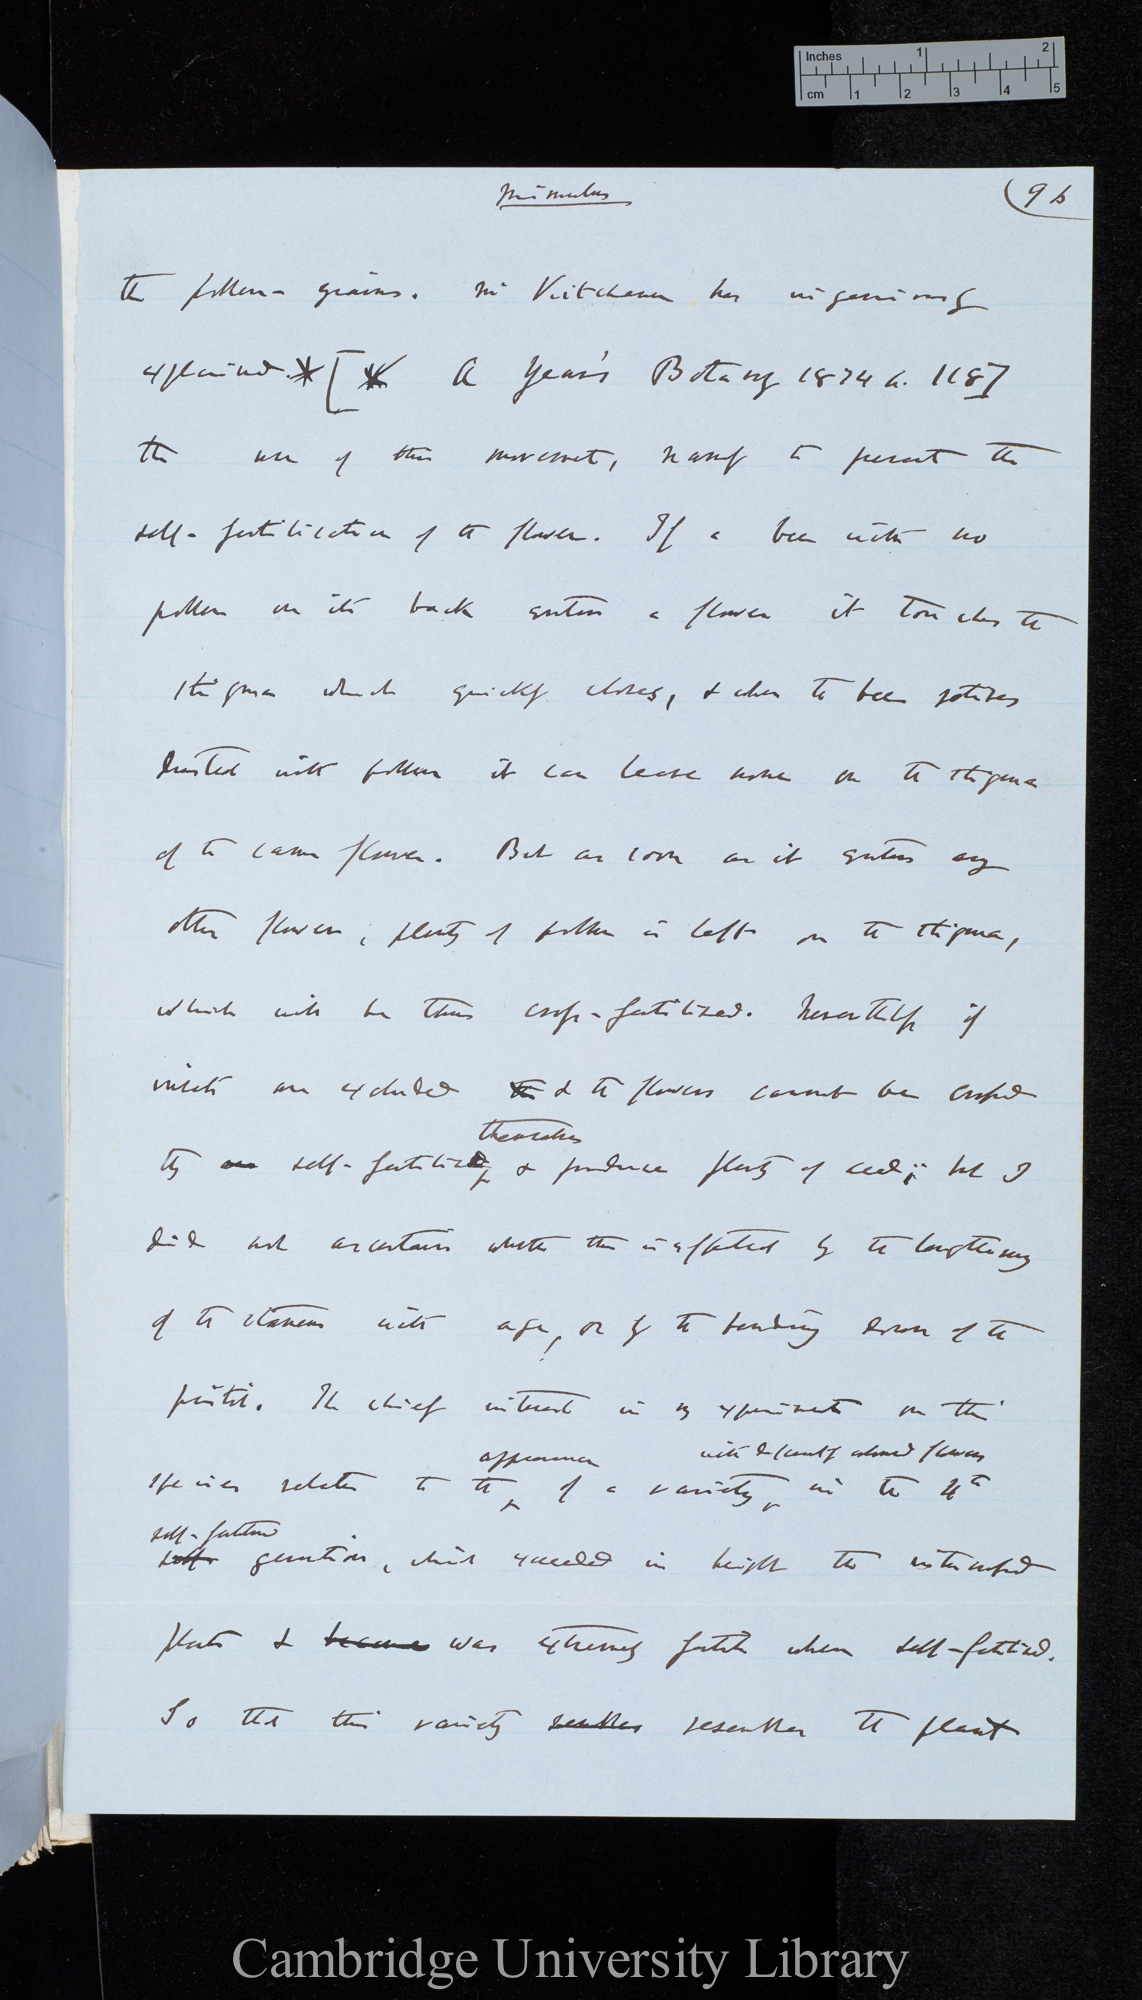 Inches 1 2
cm 1 2 3 4 5
Mimulus
(9 b
the pollen-grains. Mr Kitchener has ingeniously
explained.* [* A Year's Botany 1874 p. 118]
the use of this movement, namely to prevent the
self-fertilisation of the flower. If a bee with no
pollen on its back enters a flower it touches the
stigma which quickly closes, & when the bee retires
dusted with pollen it can leave none on the stigma
of the same flower. But as soon as it enters any
other flower, plenty of pollen is left on the stigma,
which will be thus cross-fertilised. Nevertheless if
insects are excluded the & the flowers cannot be crossed
themselves
they are self-fertilise & produce plenty of seed; but I
did not ascertain whether this is effected by the lengthening
of the stamens with age, or by the bending down of the
pistil. The chief interest in my experiments on this
appearance with coloured flowers
species relates to the of a variety, in the 4th
self-fertilised
self generation, which exceeded in height the intercrossed
plants & became was extremely fertile when self-fertilised.
So that this variety resembles resembles the plant
Cambridge University Library